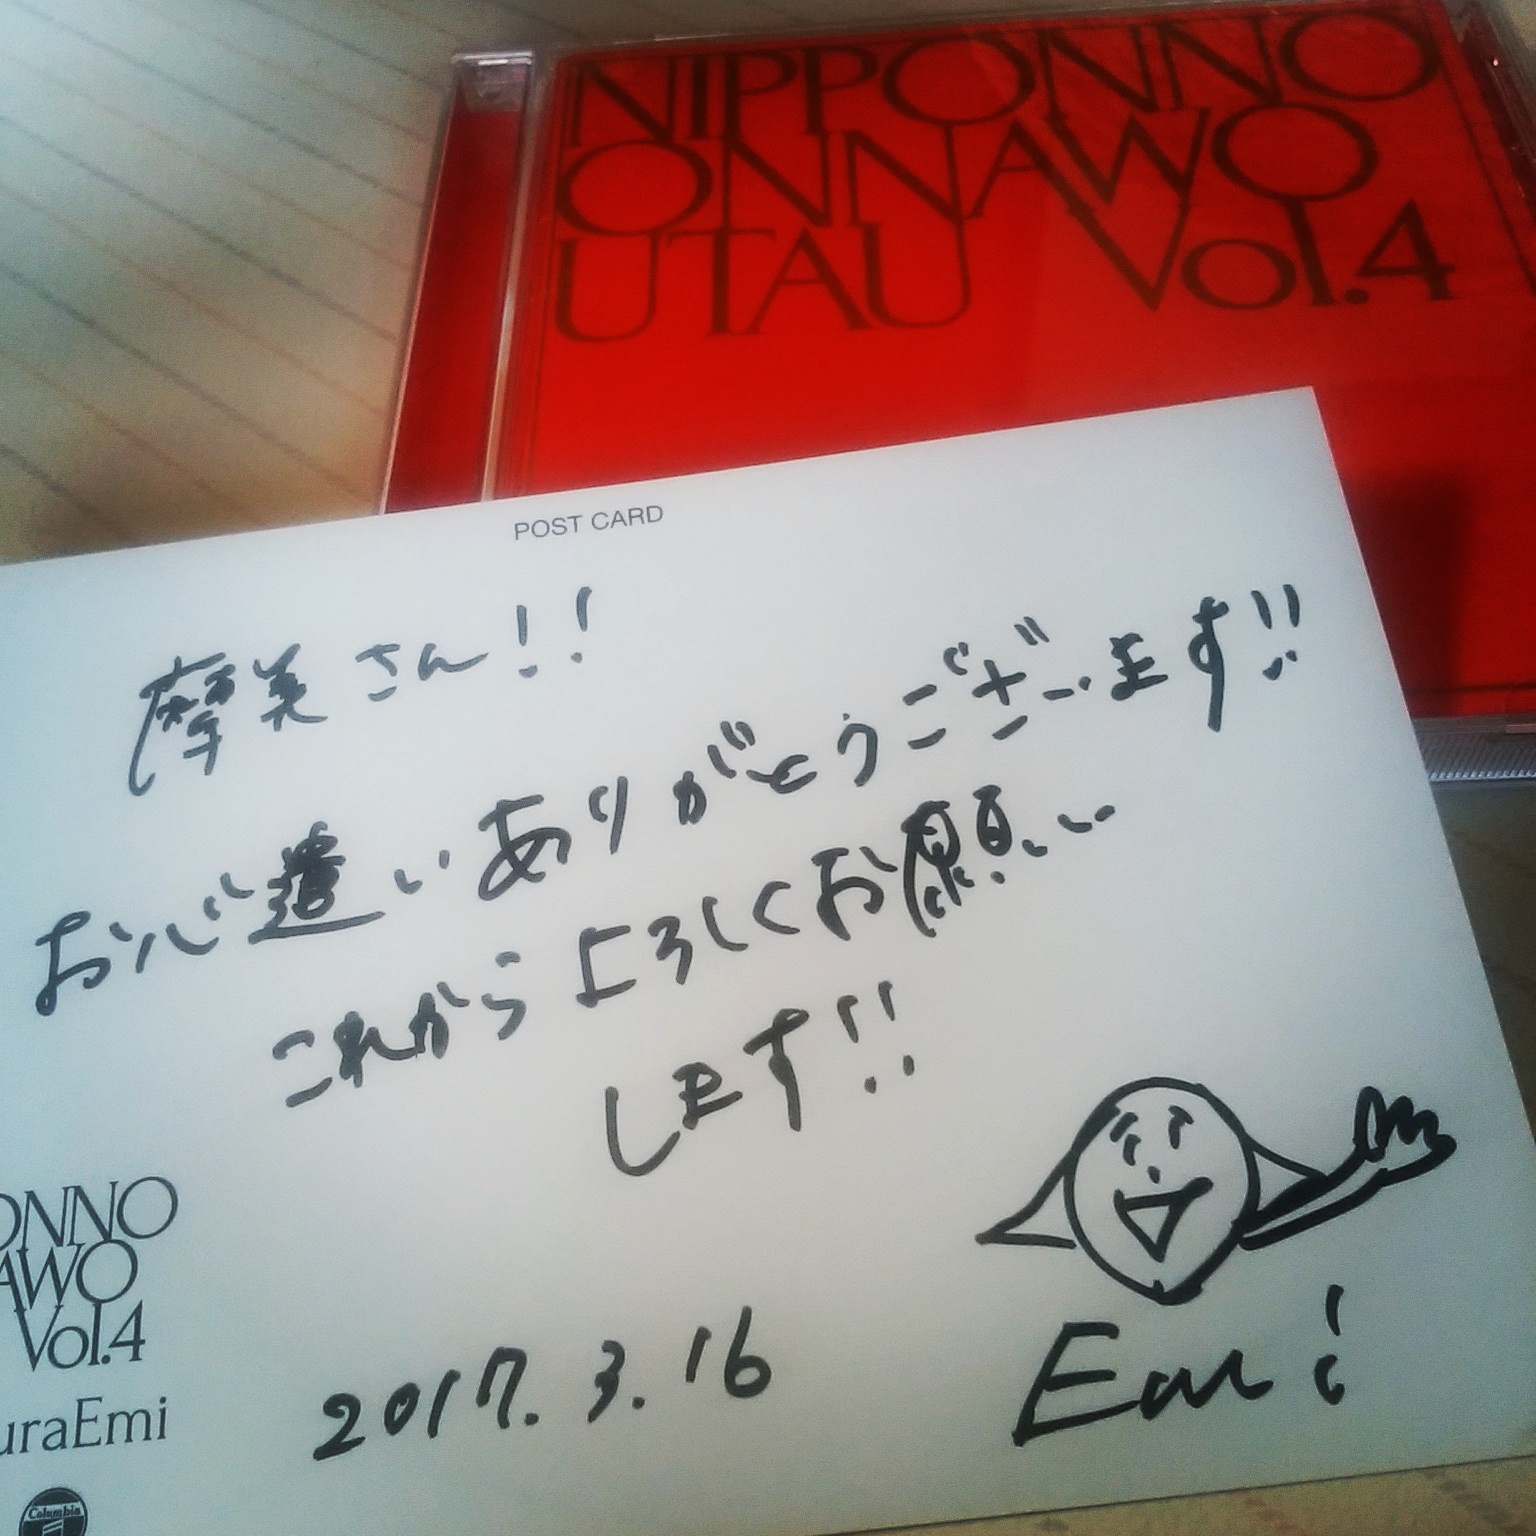 NIPPONNO
ONNAWO
UTAU Vol.4
POST CARD
摩美さん!!
お心遣いありがとうございます!!
これからよろしくお願い
します!!
2017.3.16
Emi
ONNO
AWO
Vol.4
uraEmi
Columbia